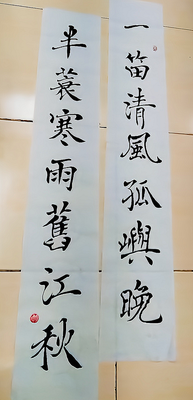 一笛清風孤嶼晚
半蓑寒雨舊江秋